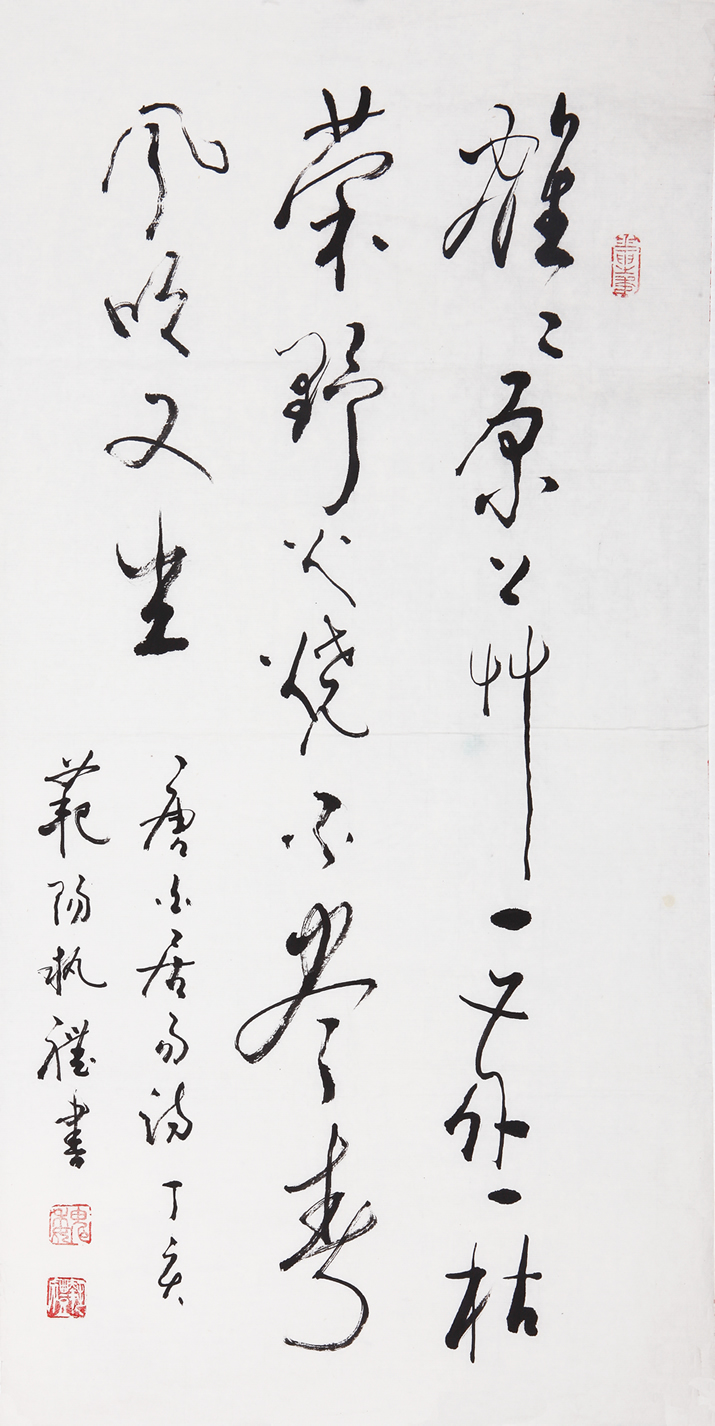 離〻原上艸一歲一枯
榮野火燒不盡春
風吹又生
唐白居易詩丁亥
範陽執禮書